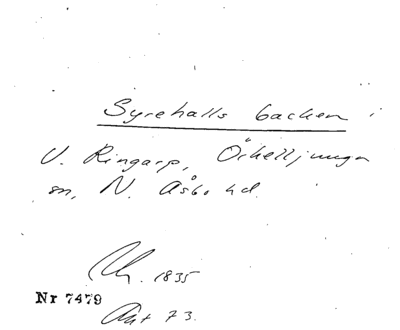 Syrehalls backen i
V. Ringarp, Örkelljunga
sn, N. Åsbo hd.
1835
Nr 7479
73.